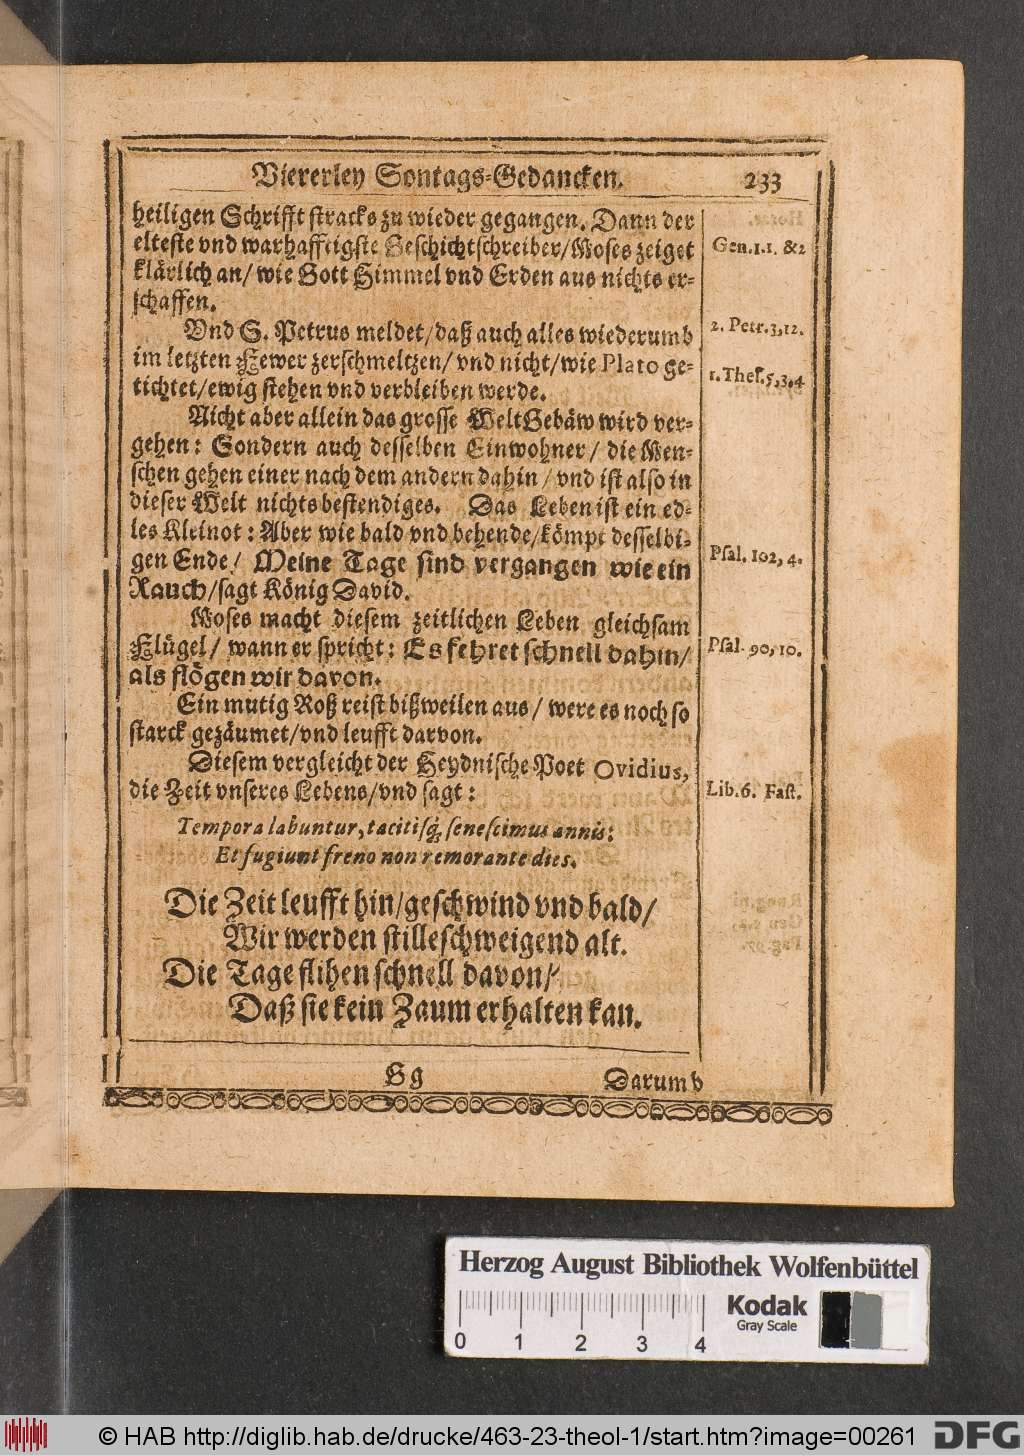 Viererley Sontags-Gedancken. 233
heiligen Schrifft stracks zu wieder gegangen. Dann der
elteste vnd warhafftigste Geschichtschreiber/Moses zeiget
klärlich an/ wie Gott Himmel vnd Erden aus nichts er-
schaffen.
Gen. 1.1. &2
Vnd S. Petrus meldet/daß auch alles wiederumb
im letzten Fewer zerschmeltzen/ vnd nicht/wie Plato ge-
tichtet/ewig stehen vnd verbleiben werde.
2. Petr. 3, 12.
1. Thes. 5, 3, 4
Nicht aber allein das grosse WeltGebäw wird ver-
gehen: Sondern auch desselben Einwohner/ die Men-
schen gehen einer nach dem andern dahin/ vnd ist also in
dieser Welt nichts bestendiges. Das Leben ist ein ed-
les Kleinot: Aber wie bald vnd behende/kömpt desselbi-
gen Ende/ Meine Tage sind vergangen wie ein
Rauch/sagt König David.
Psal. 102, 4.
Moses macht diesem zeitlichen Leben gleichsam
Flügel/ wann er spricht: Es fehret schnell dahin/
als flögen wir davon.
Psal. 90, 10.
Ein mutig Roß reist bißweilen aus/ were es noch so
starck gezäumet/vnd leufft darvon.
Diesem vergleicht der Heydnische Poet Ovidius,
die Zeit vnseres Lebens/vnd sagt:
Lib. 6. Fast.
Tempora labuntur, tacitisq́; senescimus annis:
Et fugiunt freno non remorante dies.
Die Zeit leufft hin/geschwind vnd bald/
Wir werden stilleschweigend alt.
Die Tage flihen schnell davon/
Daß sie kein Zaum erhalten kan.
Gg Darumb
Herzog August Bibliothek Wolfenbüttel
Kodak
Gray Scale
0 1 2 3 4
© HAB http://diglib.hab.de/drucke/463-23-theol-1/start.htm?image=00261
DFG